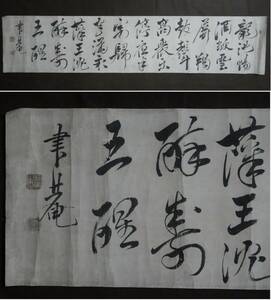 龍池賜
酒敞雲
屏羯
鼓聲
高衆樂
停夜半
宴歸
宮漏永
薛王沈
醉壽
王醒
聿菴
薛王沈
醉壽
王醒
聿菴